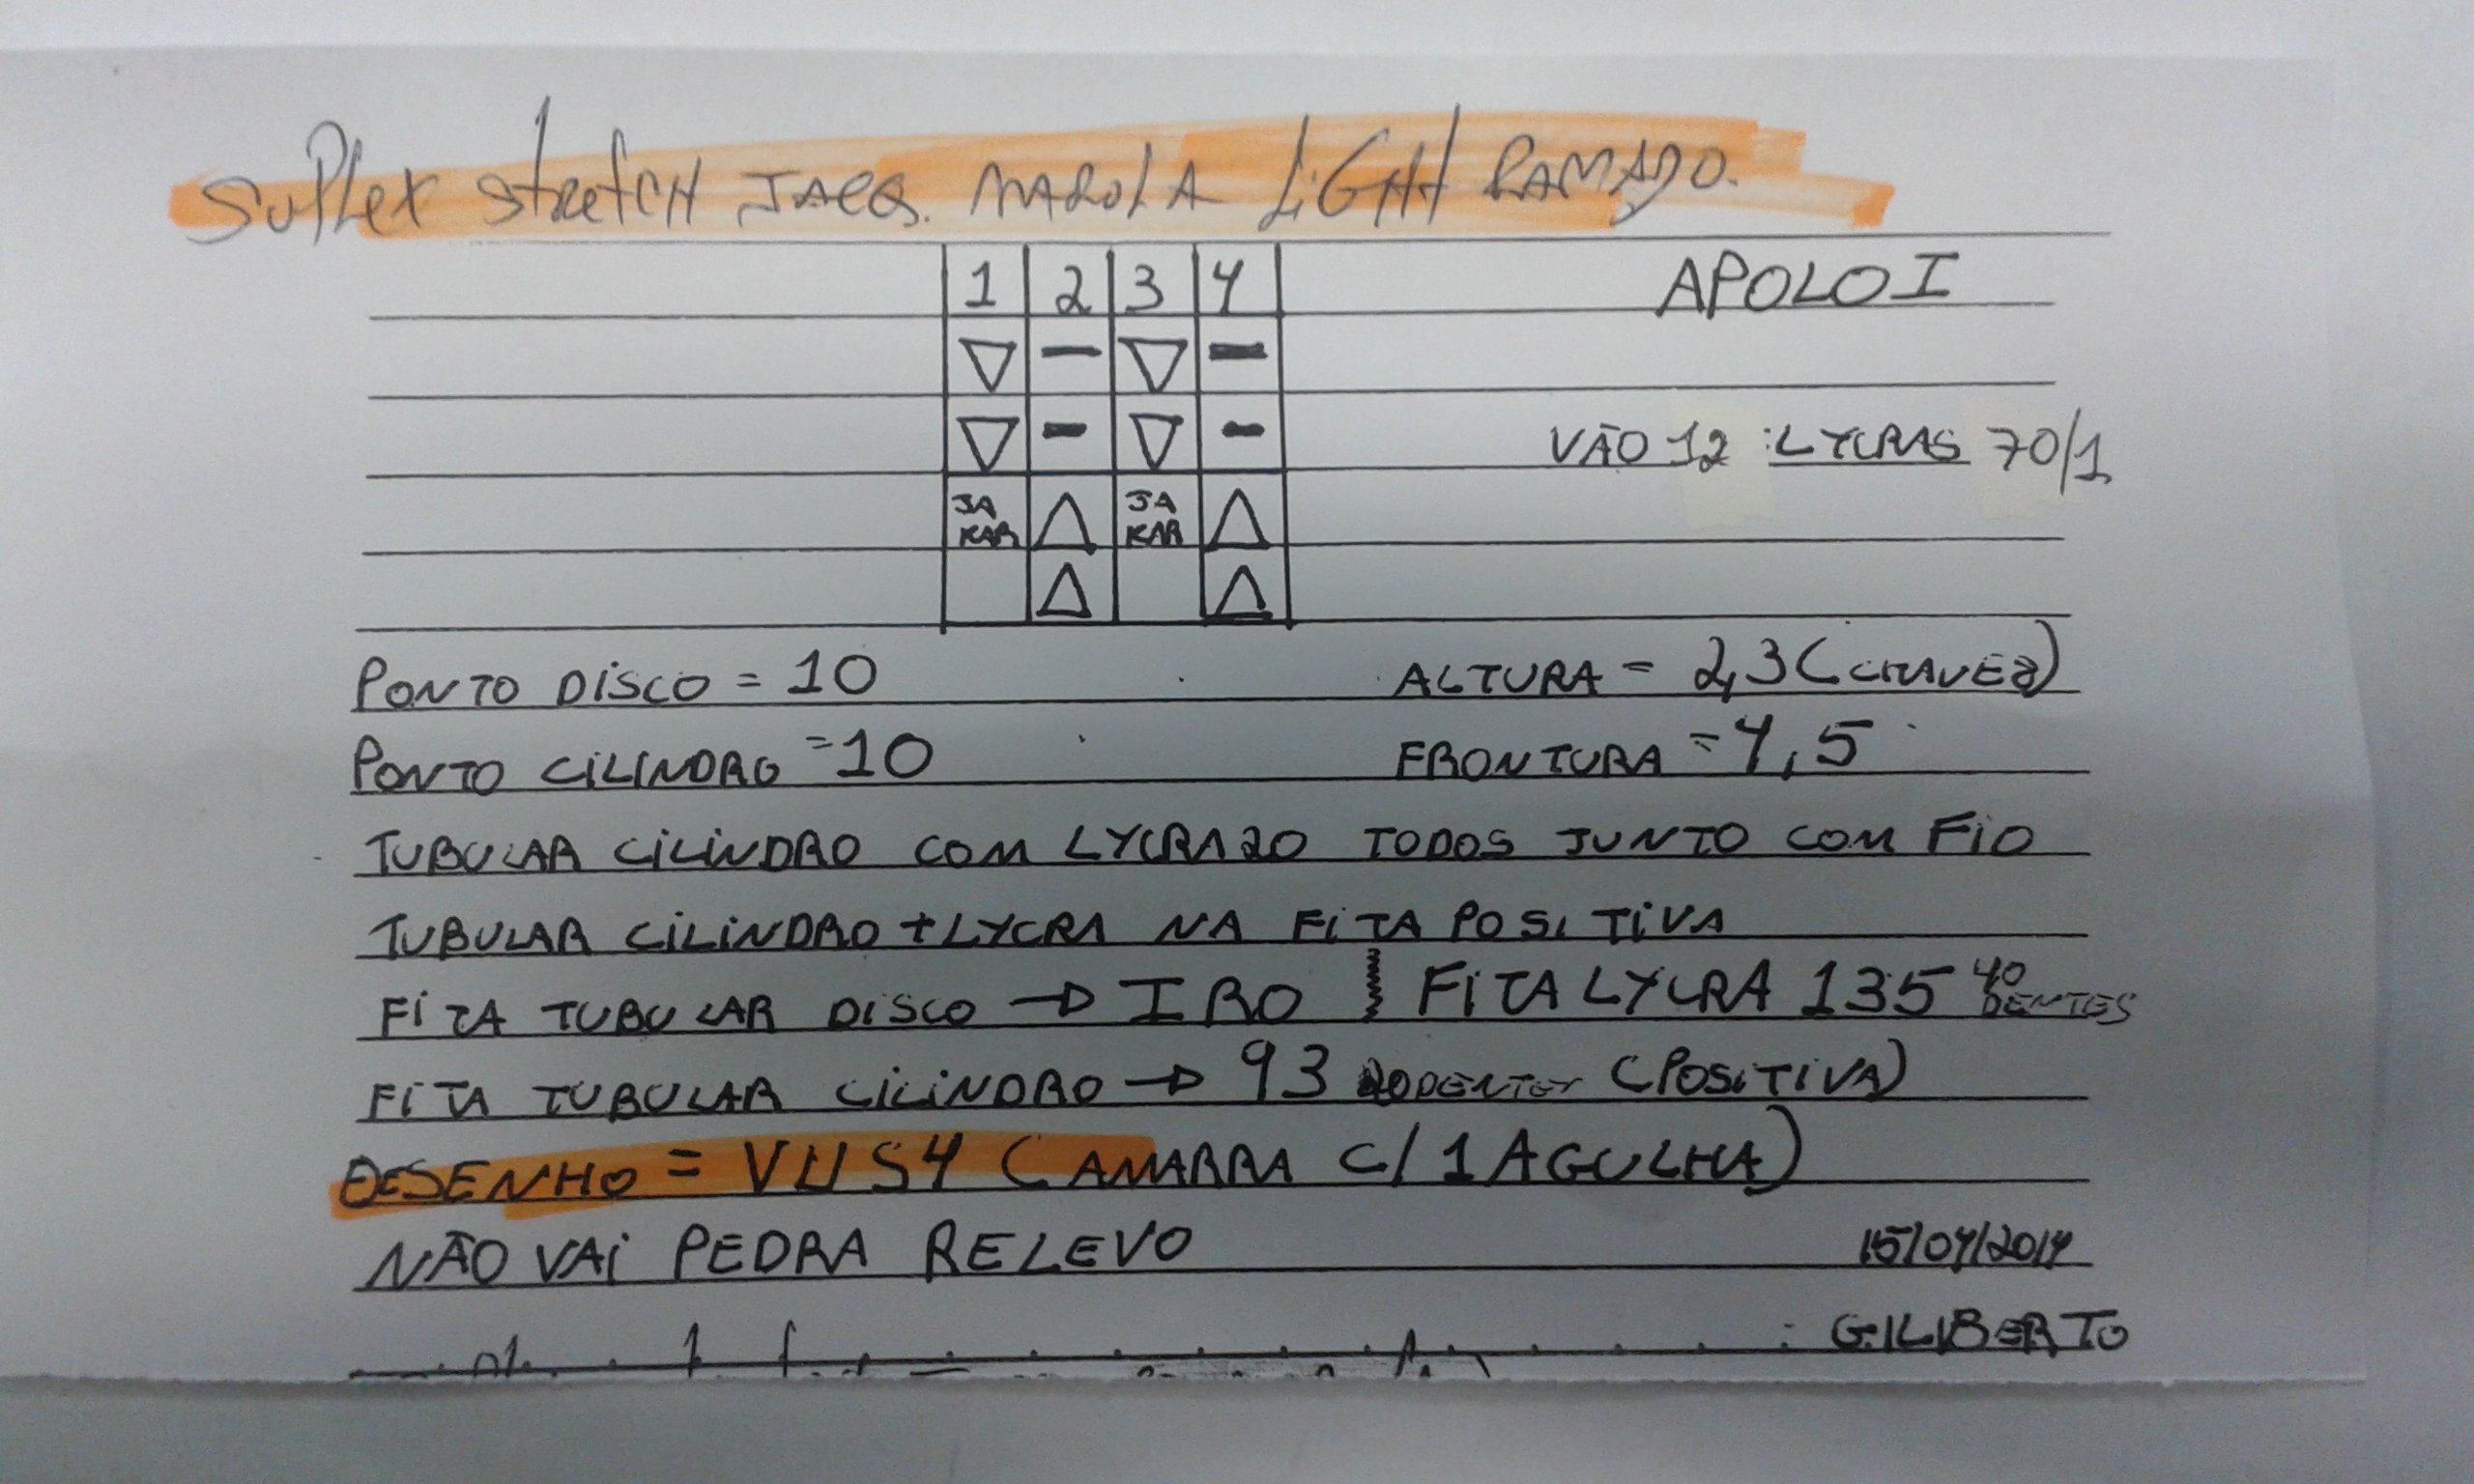 SUPLEX STRETCH JACQ. MAROLA LIGHT RAMADO.
1 2 3 4 APOLO I
VÃO 12 LYCRAS 70/1
JA KAR JA KAR
PONTO DISCO = 10 ALTURA = 2,3 (CHAVES)
PONTO CILINDRO = 10 FRONTURA = 4,5
TUBULAR CILINDRO COM LYCRA 20 TODOS JUNTO COM FIO
TUBULAR CILINDRO + LYCRA NA FITA POSITIVA
FITA TUBULAR DISCO → IRO FITA LYCRA 135 40 DENTES
FITA TUBULAR CILINDRO → 93 DENTES (POSITIVA)
DESENHO = (AMARRA C/ 1 AGULHA)
NÃO VAI PEDRA RELEVO 15/04/2014
GILIBERTO